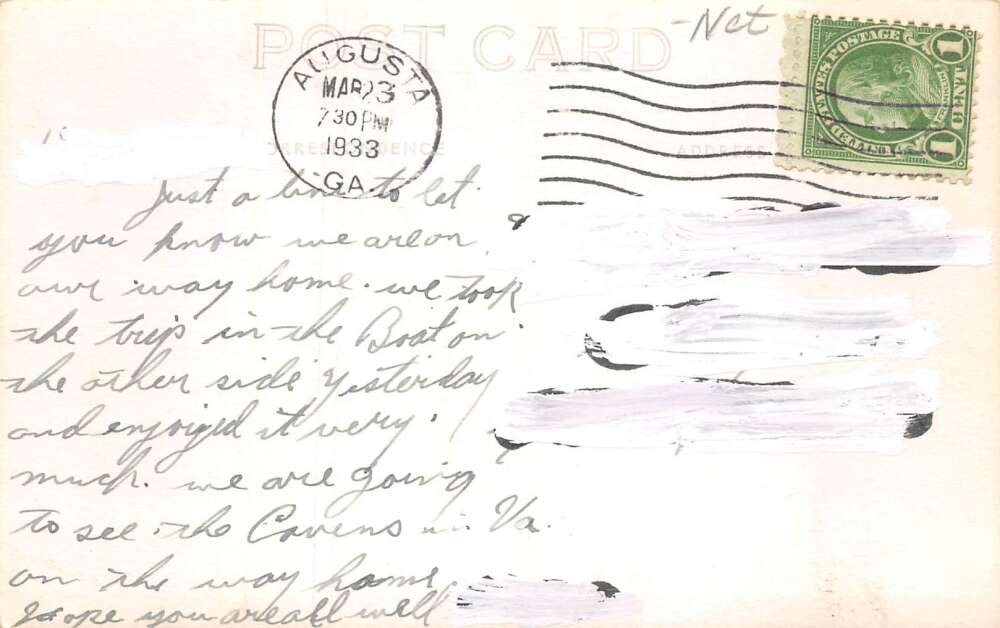 POST CARD
-Nct
AUGUSTA
MAR 23
7 30 PM
1933
GA.
UNITED STATES POSTAGE
1 CENT 1
CORRESPONDENCE
ADDRESS
Just a line to let
you know we are on
our way home. we took
the trip in the Boat on
the other side yesterday
and enjoyed it very.
much. we are going
to see the Cavens in Va.
on the way home
Hope you are all well